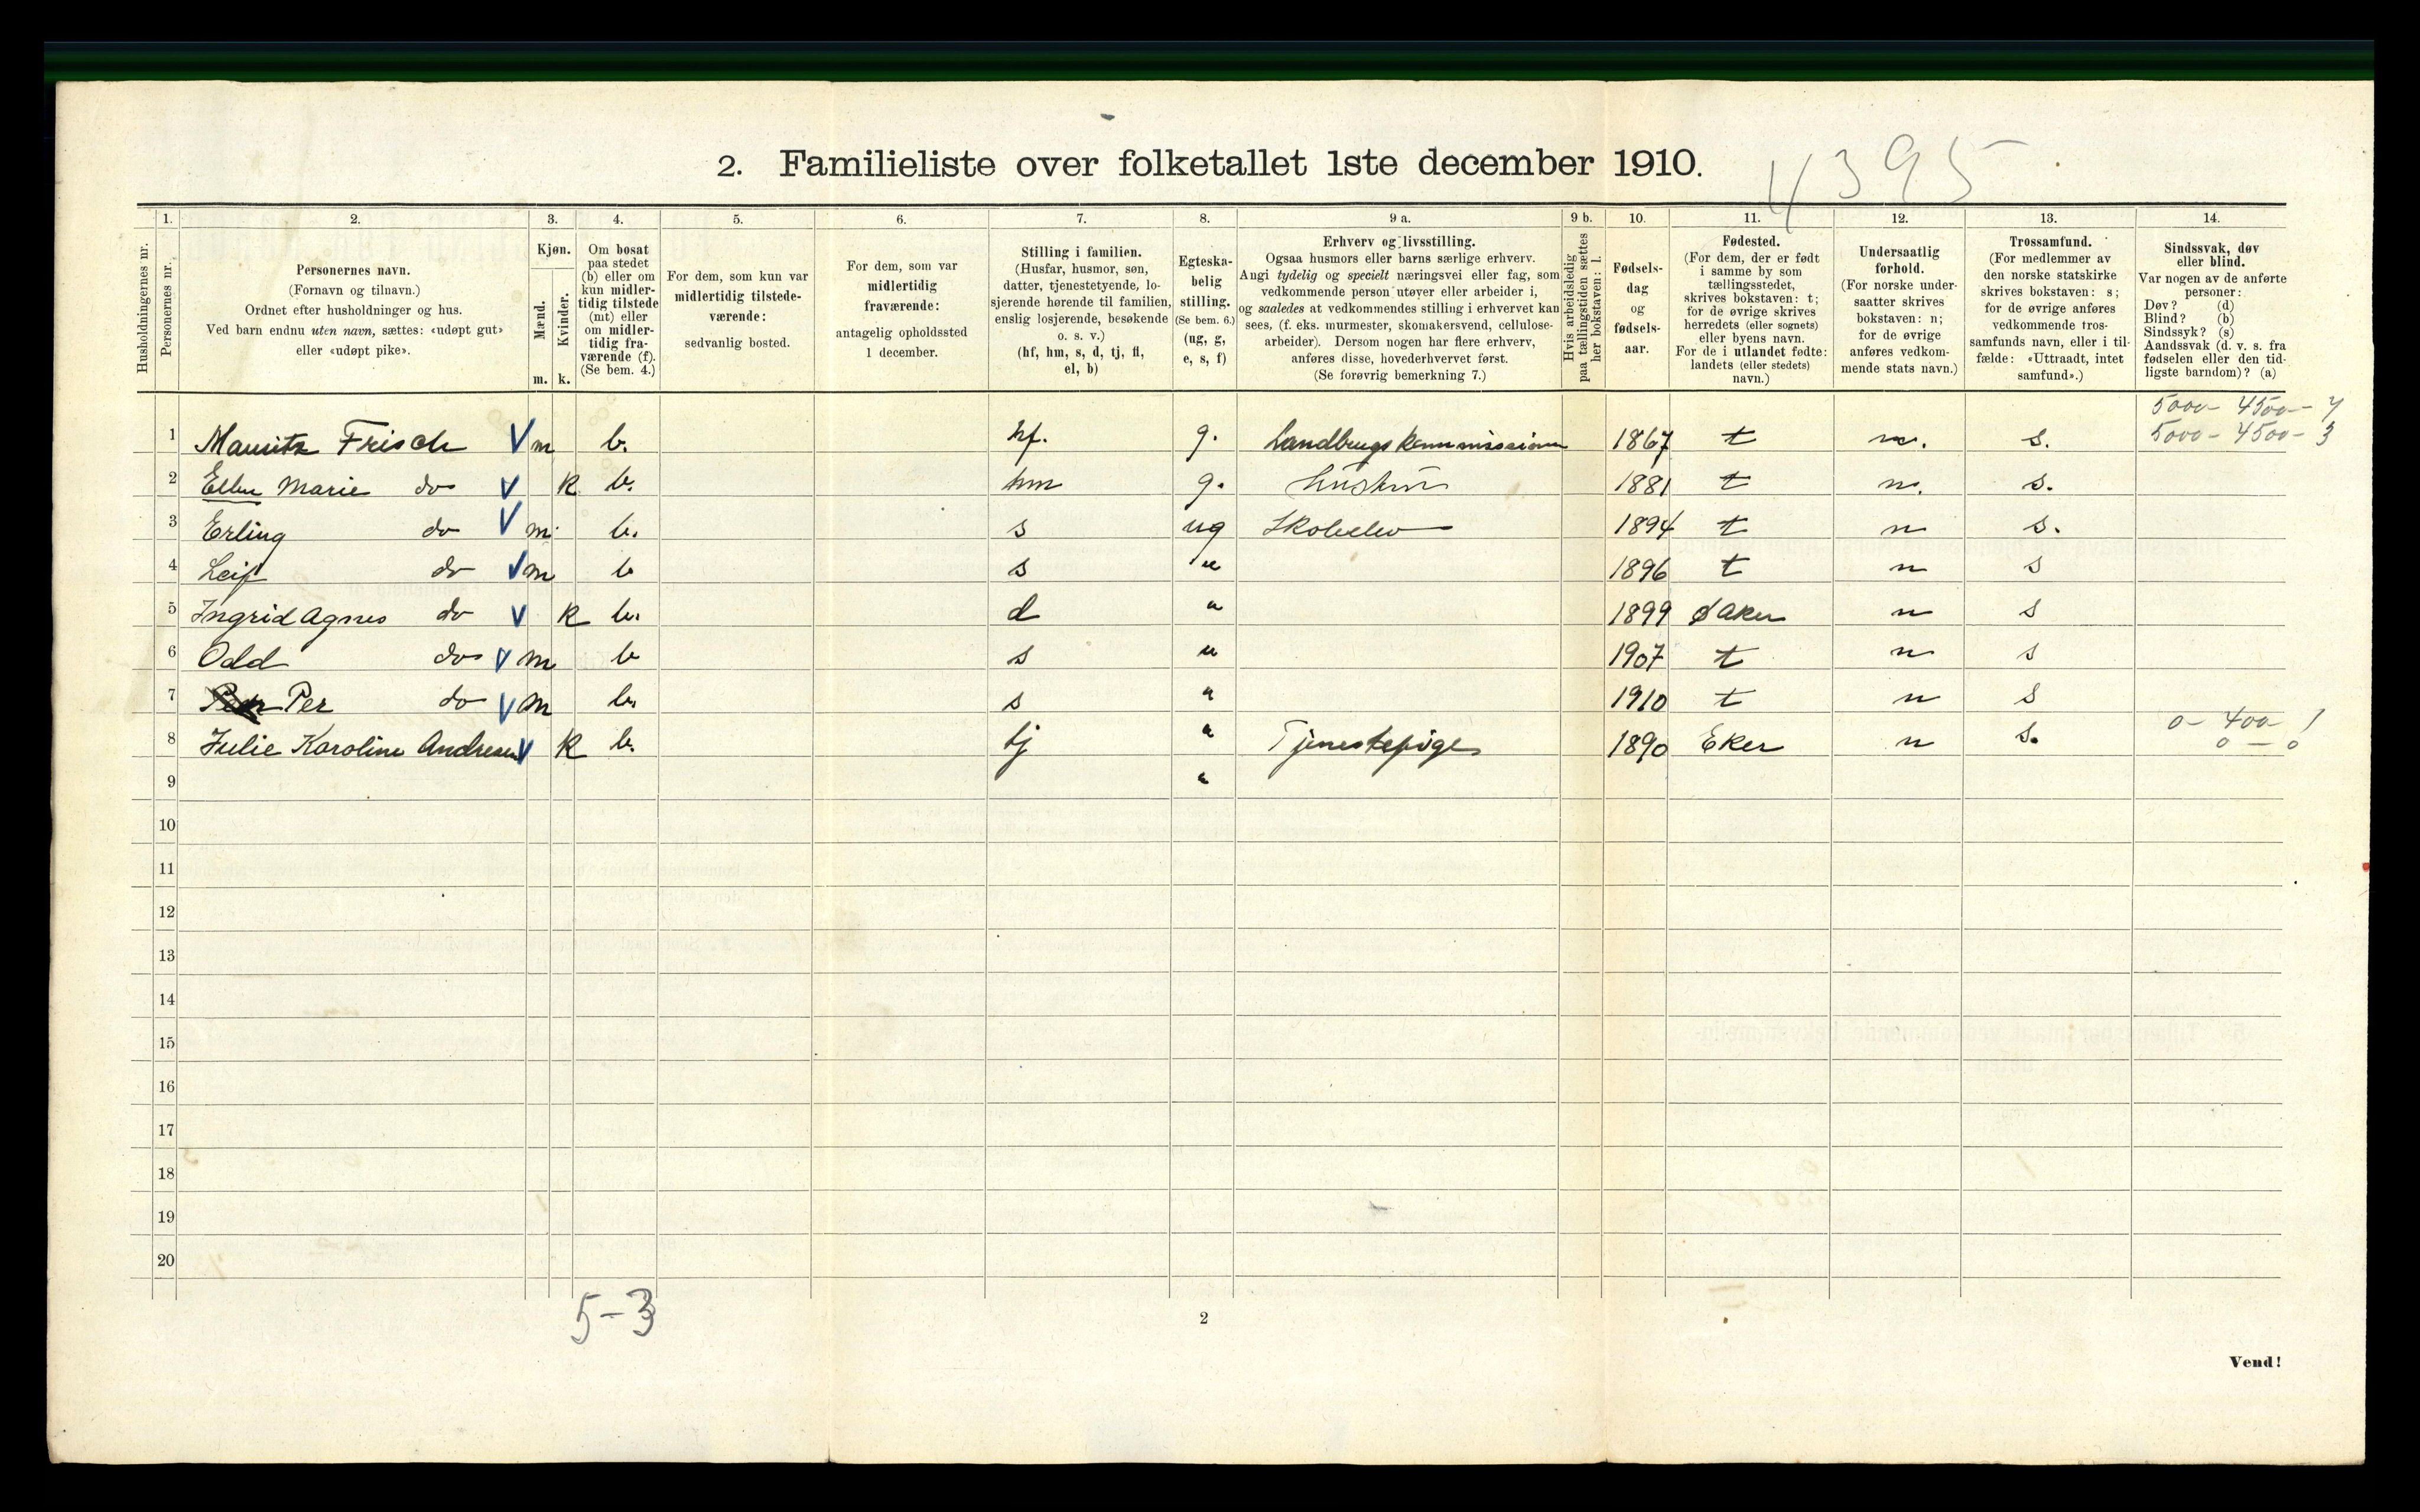 4395
2. Familieliste over folketallet 1ste december 1910.
Husholdningernes nr.
1. Personernes nr.
2. Personernes navn. (Fornavn og tilnavn.) Ordnet efter husholdninger og hus. Ved barn endnu uten navn, sættes: «udøpt gut» eller «udøpt pike».
3. Kjøn. Mænd. m. Kvinder. k.
4. Om bosat paa stedet (b) eller om kun midlertidig tilstede (mt) eller om midlertidig fraværende (f). (Se bem. 4.)
5. For dem, som kun var midlertidig tilstedeværende: sedvanlig bosted.
6. For dem, som var midlertidig fraværende: antagelig opholdssted 1 december.
7. Stilling i familien. (Husfar, husmor, søn, datter, tjenestetyende, losjerende hørende til familien, enslig losjerende, besøkende o. s. v.) (hf, hm, s, d, tj, fl, el, b)
8. Egteskabelig stilling. (Se bem. 6.) (ug, g, e, s, f)
9 a. Erhverv og livsstilling. Ogsaa husmors eller barns særlige erhverv. Angi tydelig og specielt næringsvei eller fag, som vedkommende person utøver eller arbeider i, og saaledes at vedkommendes stilling i erhvervet kan sees, (f. eks. murmester, skomakersvend, cellulosearbeider). Dersom nogen har flere erhverv, anføres disse, hovederhvervet først. (Se forøvrig bemerkning 7.)
9 b. Hvis arbeidsledig paa tællingstiden sættes her bokstaven: l.
10. Fødselsdag og fødselsaar.
11. Fødested. (For dem, der er født i samme by som tællingsstedet, skrives bokstaven: t; for de øvrige skrives herredets (eller sognets) eller byens navn. For de i utlandet fødte: landets (eller stedets) navn.)
12. Undersaatlig forhold. (For norske undersaatter skrives bokstaven: n; for de øvrige anføres vedkommende stats navn.)
13. Trossamfund. (For medlemmer av den norske statskirke skrives bokstaven: s; for de øvrige anføres vedkommende trossamfunds navn, eller i tilfælde: «Uttraadt, intet samfund».)
14. Sindssvak, døv eller blind. Var nogen av de anførte personer: Døv? (d) Blind? (b) Sindssyk? (s) Aandssvak (d. v. s. fra fødselen eller den tidligste barndom)? (a)
5000 - 4500 - 4
1 Mauritz Frisch V m b. hf. g. Landbrugskommissioner 1867 t n. s. 5000 - 4500 - 3
2 Ellen Marie do V k b. hm g. Husmor 1881 t n. s.
3 Erling do V m. b. s ug Skoleelev 1894 t n s.
4 Leif do V m b s " 1896 t n s
5 Ingrid Agnes do V k b. d " 1899 Ø Aker n s
6 Odd do V m b s " 1907 t n s
7 Per do V m b. s " 1910 t n s
0 - 400 - 1
8 Julie Karoline Andresen V k b. tj " Tjenestepige 1890 Eker n s. 0 - 0
9 "
10
11
12
13
14
15
16
17
18
19
20
5-3
2
Vend!